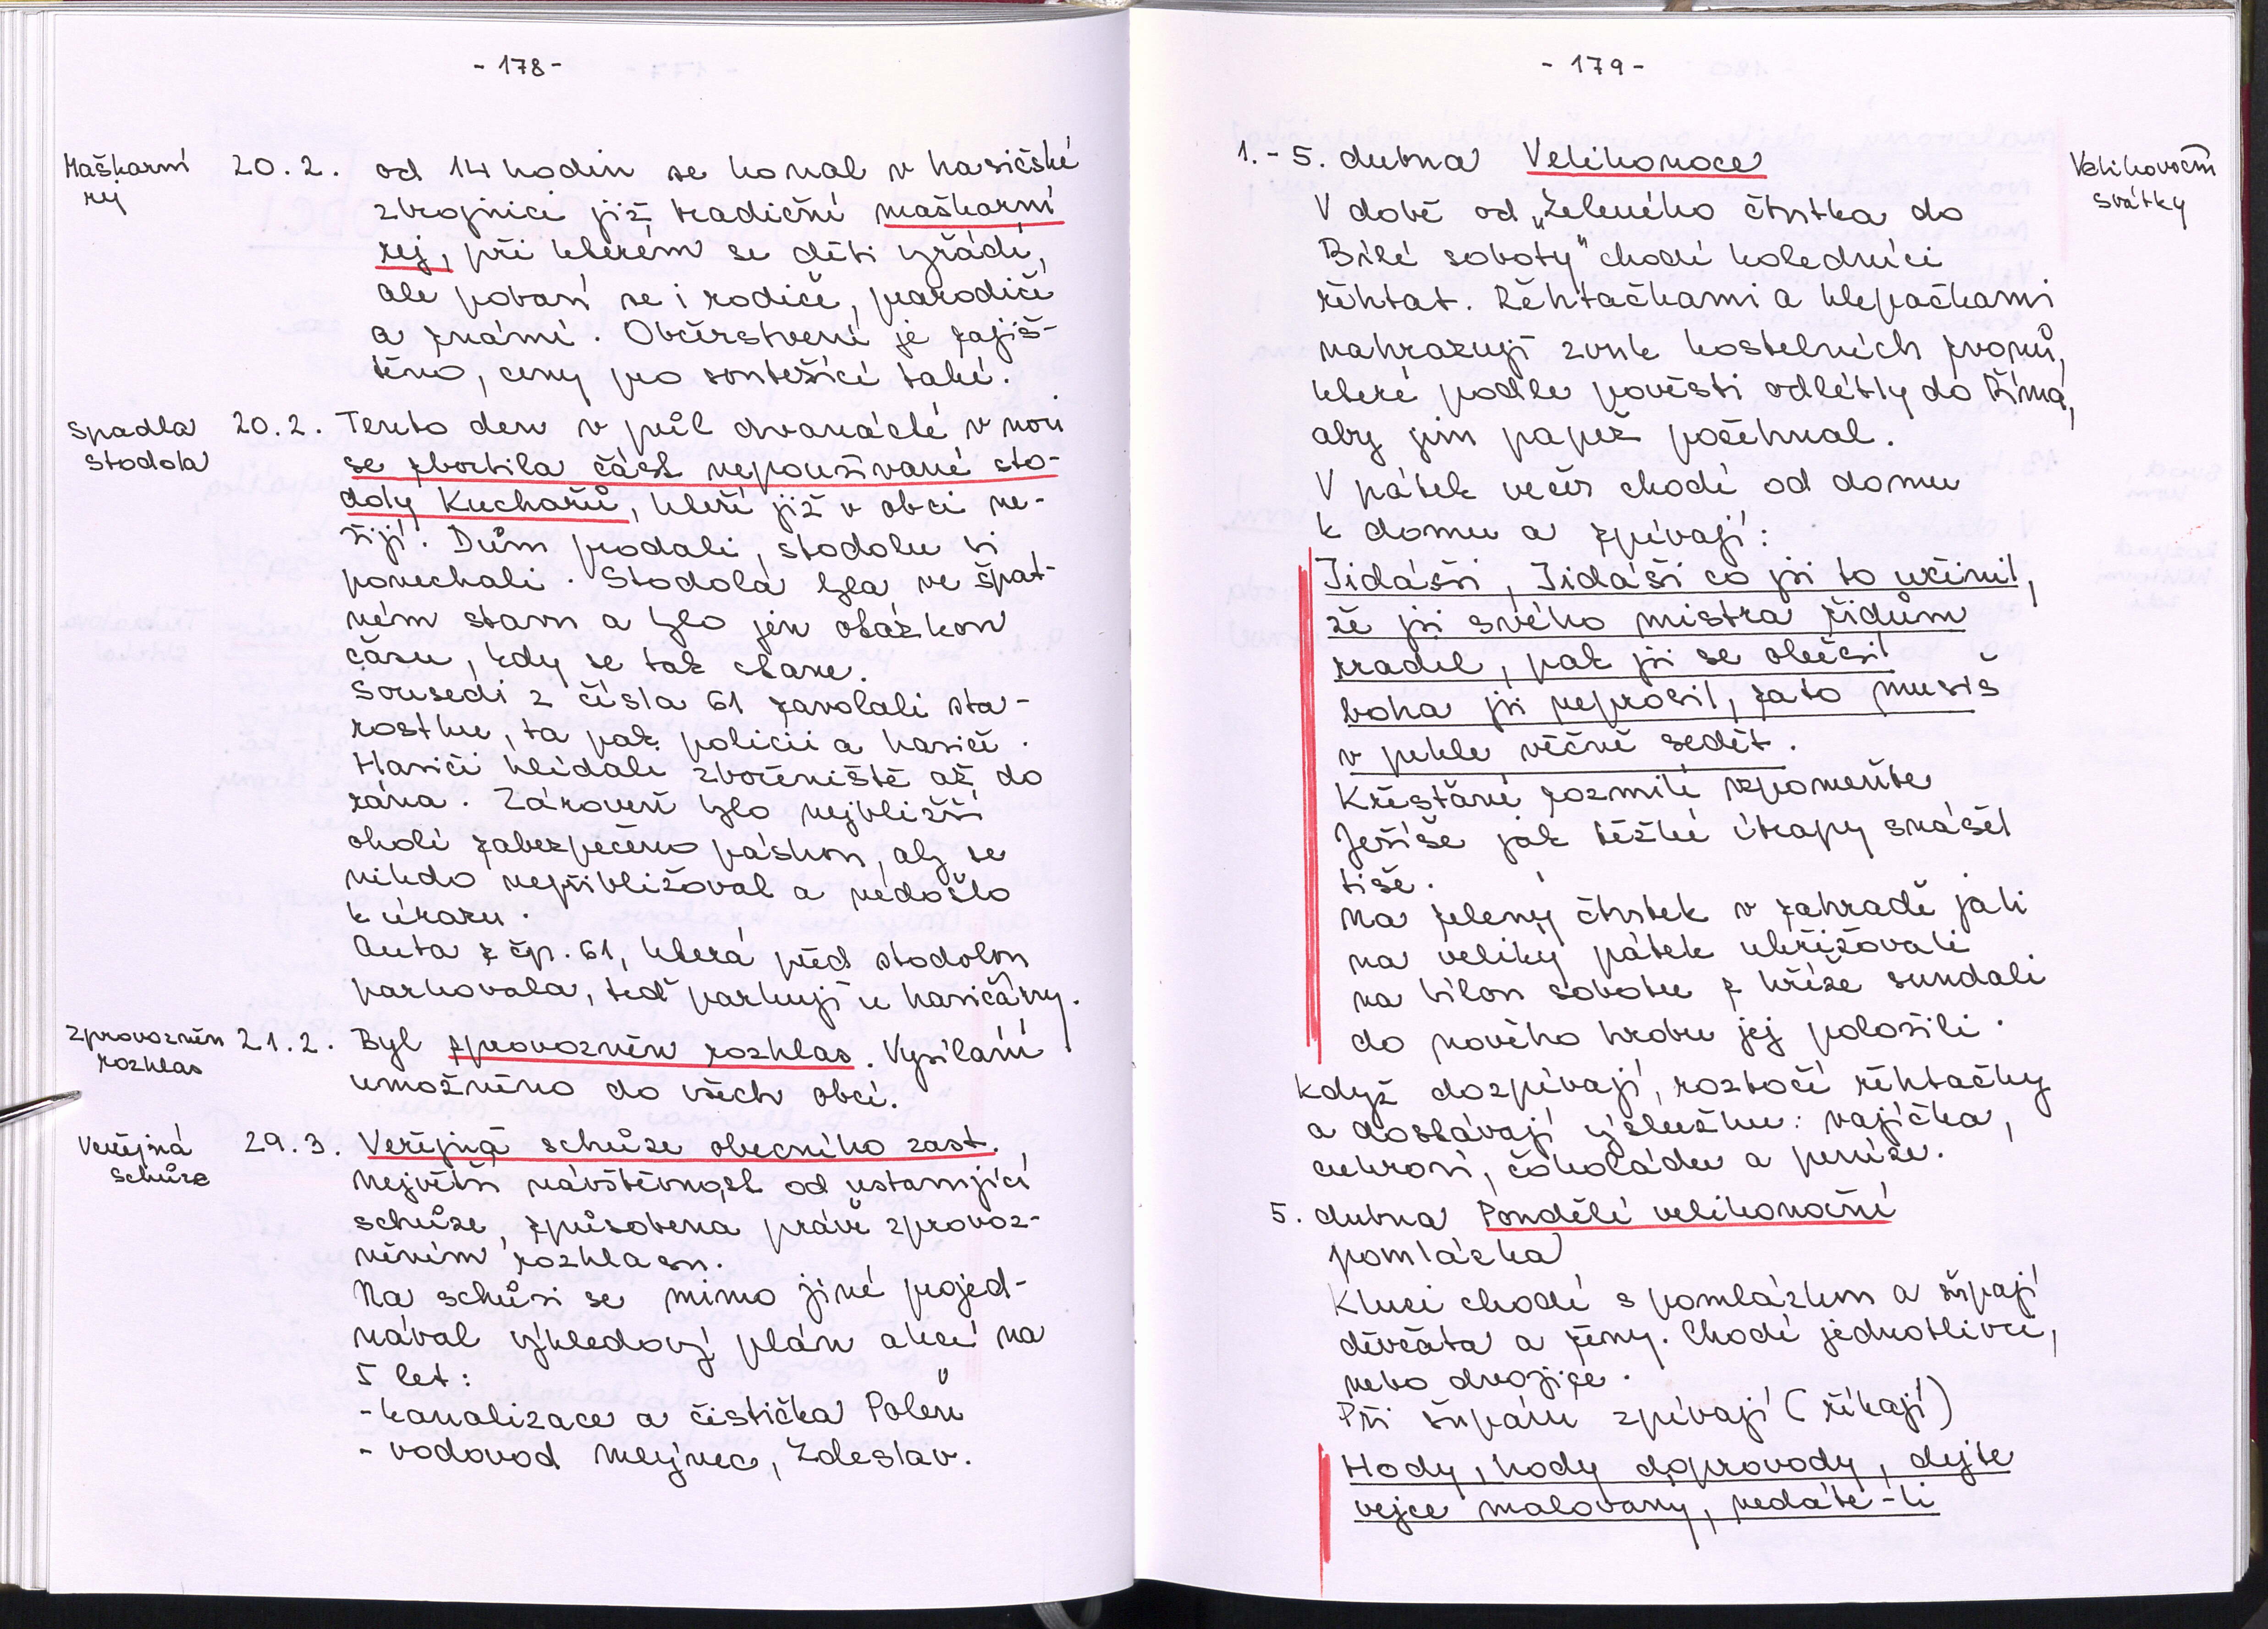 - 178 -
Maškarní
rej
20.2. od 14 hodin se konal v hasičské
zbrojnici již tradiční maškarní
rej, při kterém se děti vyřádí,
ale pobaví se i rodiče, prarodiče
a známí. Občerstvení je zajiš-
těno, ceny pro soutěžící také.
Spadla
stodola
20.2. Tento den v půl dvanácté v noci
se zbortila část nepoužívané sto-
doly Kuchařů, kteří již v obci ne-
žijí. Dům prodali, stodolu si
ponechali. Stodola byla ve špat-
ném stavu a bylo jen otázkou
času, kdy se tak stane.
Sousedi z čísla 61 zavolali sta-
rostku, ta pak policii a hasiče.
Hasiči hlídali zbořeniště až do
rána. Zároveň bylo nejbližší
okolí zabezpečeno páskou, aby se
nikdo nepřibližoval a nedošlo
k úrazu.
Auta z čp. 61, která před stodolou
parkovala, teď parkují u hasičárny.
Zprovozněn
rozhlas
21.2. Byl zprovozněn rozhlas. Vysílání
umožněno do všech obcí.
Veřejná
schůze
29.3. Veřejná schůze obecního zast.,
největší návštěvnost od ustavující
schůze, způsobena právě zprovoz-
něním rozhlasu.
Na schůzi se mimo jiné projed-
nával výhledový plán akcí na
5 let:
- kanalizace a čistička Poleň
- vodovod Mlýnec, Zdeslav.
- 179 -
Velikonoční
svátky
1. - 5. dubna Velikonoce
V době od „Zeleného čtvrtka do
Bílé soboty" chodí koledníci
řehtat. Řehtačkami a klepačkami
nahrazují zvuk kostelních zvonů,
které podle pověsti odlétly do Říma,
aby jim papež požehnal.
V pátek večer chodí od domu
k domu a zpívají:
Jidáši, Jidáši co jsi to učinil,
že jsi svého mistra židům
zradil, pak jsi se oběsil
boha jsi neprosil, za to musíš
v pekle věčně sedět.
Křesťané rozmilí vzpomeňte
Ježíše jak těžké útrapy snášel
tiše.
Na zelený čtvrtek v zahradě jali
na veliký pátek ukřižovali
na bílou sobotu z kříže sundali
do nového hrobu jej položili.
Když dozpívají, roztočí řehtačky
a dostávají výslužku: vajíčka,
cukroví, čokoládu a peníze.
5. dubna Pondělí velikonoční
pomlázka
Kluci chodí s pomlázkou a šupají
děvčata a ženy. Chodí jednotlivci,
nebo dvojice.
Při šupání zpívají (říkají)
Hody, hody doprovody, dejte
vejce malovaný, nedáte-li